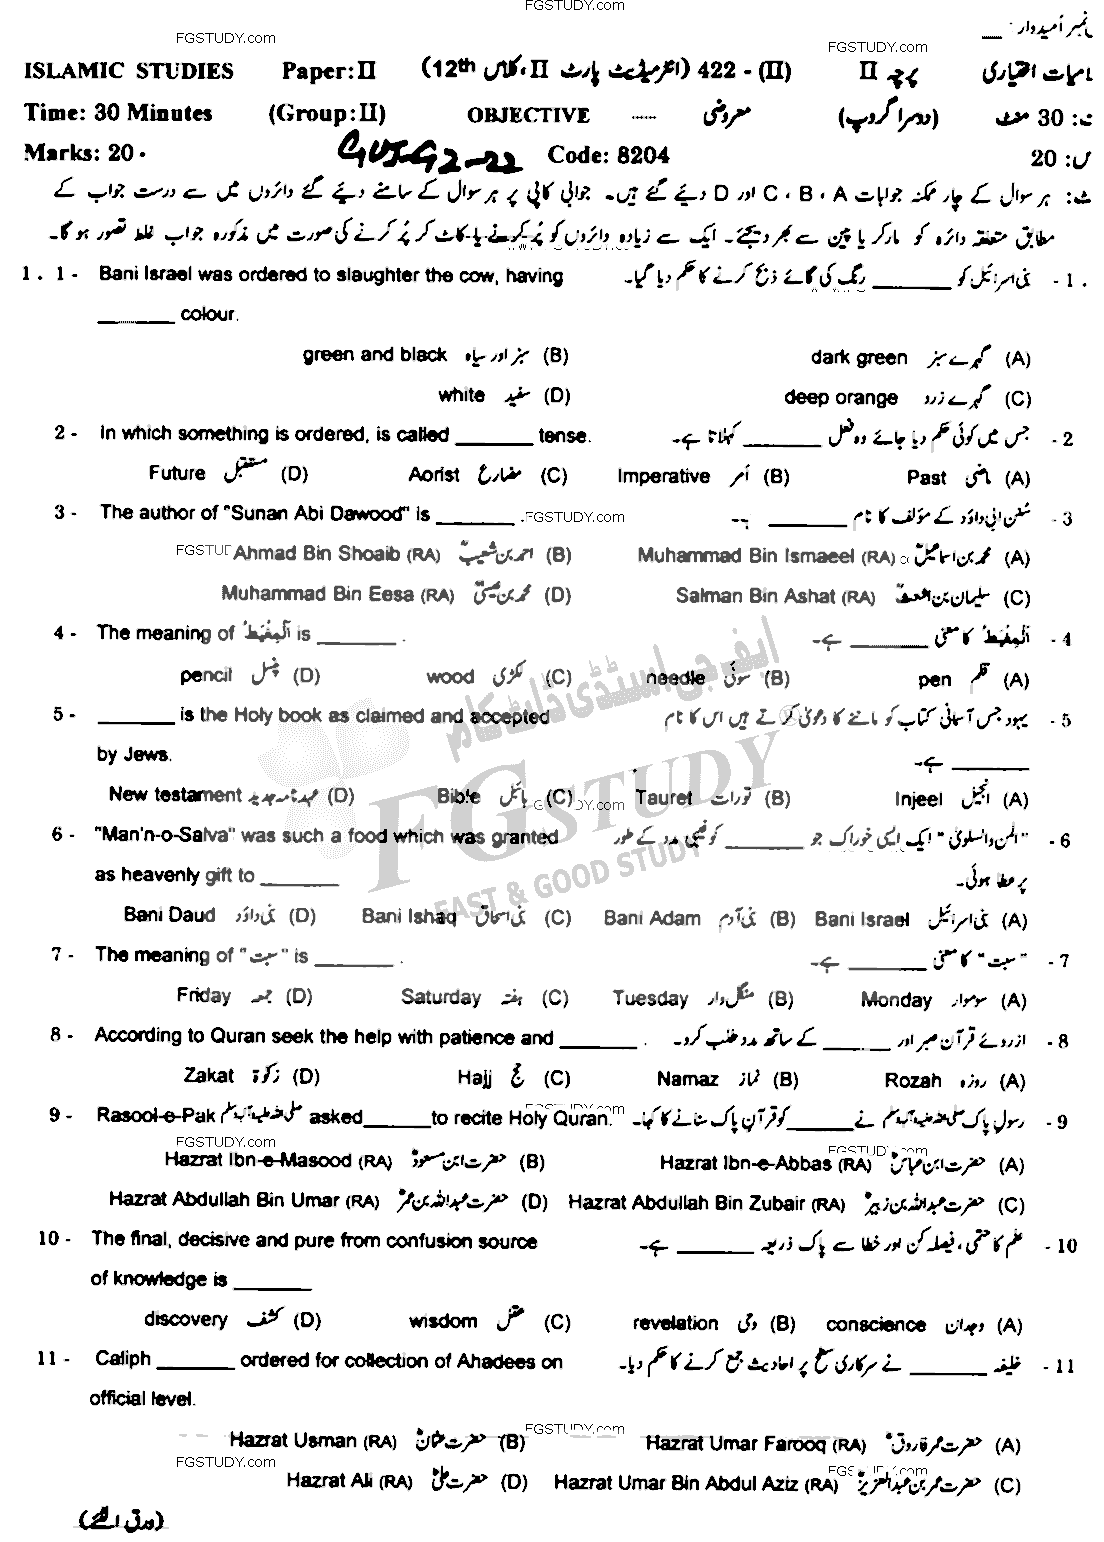 FGSTUDY.com
FGSTUDY.com
FGSTUDY.com
نمبر اُمیدوار
ISLAMIC STUDIES Paper: II (انٹرمیڈیٹ پارٹ II، کلاس 12th) 422 - (II) پرچہ II اختیاری
Time: 30 Minutes (Group: II) OBJECTIVE ...... معروضی (دوسرا گروپ) 30 منٹ
Marks: 20 GUJ-G2-22 Code: 8204 20
ہر سوال کے چار ممکنہ جوابات A ، B ، C اور D دیئے گئے ہیں۔ جوابی کاپی پر ہر سوال کے سامنے دیئے گئے دائروں میں سے درست جواب کے
مطابق متعلقہ دائرہ کو مارکر یا پین سے بھر دیجئے۔ ایک سے زیادہ دائروں کو پُر کرنے یا کاٹ کر پُر کرنے کی صورت میں مذکورہ جواب غلط تصور ہو گا۔
1 . 1 - Bani Israel was ordered to slaughter the cow, having بنی اسرائیل کو ________ رنگ کی گائے ذبح کرنے کا حکم دیا گیا۔ - 1 .
________ colour.
green and black سبز اور سیاہ (B) dark green گہرے سبز (A)
white سفید (D) deep orange گہرے زرد (C)
2 - In which something is ordered, is called ________ tense. جس میں کوئی حکم دیا جائے وہ فعل ________ کہلاتا ہے۔ - 2
Future مستقبل (D) Aorist مضارع (C) Imperative اَمر (B) Past ماضی (A)
3 - The author of "Sunan Abi Dawood" is ________ . FGSTUDY.com سُنن ابی داؤد کے مؤلف کا نام ________ ہے۔ - 3
Ahmad Bin Shoaib (RA) احمد بن شعیبؒ (B) Muhammad Bin Ismaeel (RA) محمد بن اسماعیلؒ (A)
Muhammad Bin Eesa (RA) محمد بن عیسیٰؒ (D) Salman Bin Ashat (RA) سلیمان بن اشعثؒ (C)
4 - The meaning of is ________ . کا معنی ________ ہے۔ - 4
pencil پنسل (D) wood لکڑی (C) needle سوئی (B) pen قلم (A)
5 - ________ is the Holy book as claimed and accepted یہود جس آسمانی کتاب کو ماننے کا دعویٰ کرتے ہیں اس کا نام - 5
by Jews. ________ ہے۔
New testament عہد نامہ جدید (D) Bible بائبل (C) Tauret تورات (B) Injeel انجیل (A)
6 - "Man'n-o-Salva" was such a food which was granted "المن والسلویٰ" ایک ایسی خوراک جو ________ کو غیبی مدد کے طور - 6
as heavenly gift to ________ پر عطا ہوئی۔
Bani Daud بنی داؤد (D) Bani Ishaq بنی اسحاق (C) Bani Adam بنی آدم (B) Bani Israel بنی اسرائیل (A)
ایف جی اسٹڈی ڈاٹ کام
FG STUDY
FAST & GOOD STUDY
7 - The meaning of "سبت" is ________ . "سبت" کا معنی ________ ہے۔ - 7
Friday جمعہ (D) Saturday ہفتہ (C) Tuesday منگل وار (B) Monday سوموار (A)
8 - According to Quran seek the help with patience and ________ . ازروئے قرآن صبر اور ________ کے ساتھ مدد طلب کرو۔ - 8
Zakat زکوٰۃ (D) Hajj حج (C) Namaz نماز (B) Rozah روزہ (A)
9 - Rasool-e-Pak صلی اللہ علیہ وآلہ وسلم asked ________ to recite Holy Quran. رسول پاک صلی اللہ علیہ وآلہ وسلم نے ________ کو قرآن پاک سنانے کا کہا۔ - 9
FGSTUDY.com
Hazrat Ibn-e-Masood (RA) حضرت ابن مسعودؓ (B) Hazrat Ibn-e-Abbas (RA) حضرت ابن عباسؓ (A)
Hazrat Abdullah Bin Umar (RA) حضرت عبداللہ بن عمرؓ (D) Hazrat Abdullah Bin Zubair (RA) حضرت عبداللہ بن زبیرؓ (C)
10 - The final, decisive and pure from confusion source علم کا حتمی، فیصلہ کن اور خطا سے پاک ذریعہ ________ ہے۔ - 10
of knowledge is ________
discovery کشف (D) wisdom عقل (C) revelation وحی (B) conscience وجدان (A)
11 - Caliph ________ ordered for collection of Ahadees on خلیفہ ________ نے سرکاری سطح پر احادیث جمع کرنے کا حکم دیا۔ - 11
official level.
FGSTUDY.com
Hazrat Usman (RA) حضرت عثمانؓ (B) Hazrat Umar Farooq (RA) حضرت عمر فاروقؓ (A)
FGSTUDY.com
Hazrat Ali (RA) حضرت علیؓ (D) Hazrat Umar Bin Abdul Aziz (RA) حضرت عمر بن عبدالعزیزؒ (C)
(ورق اُلٹئے)